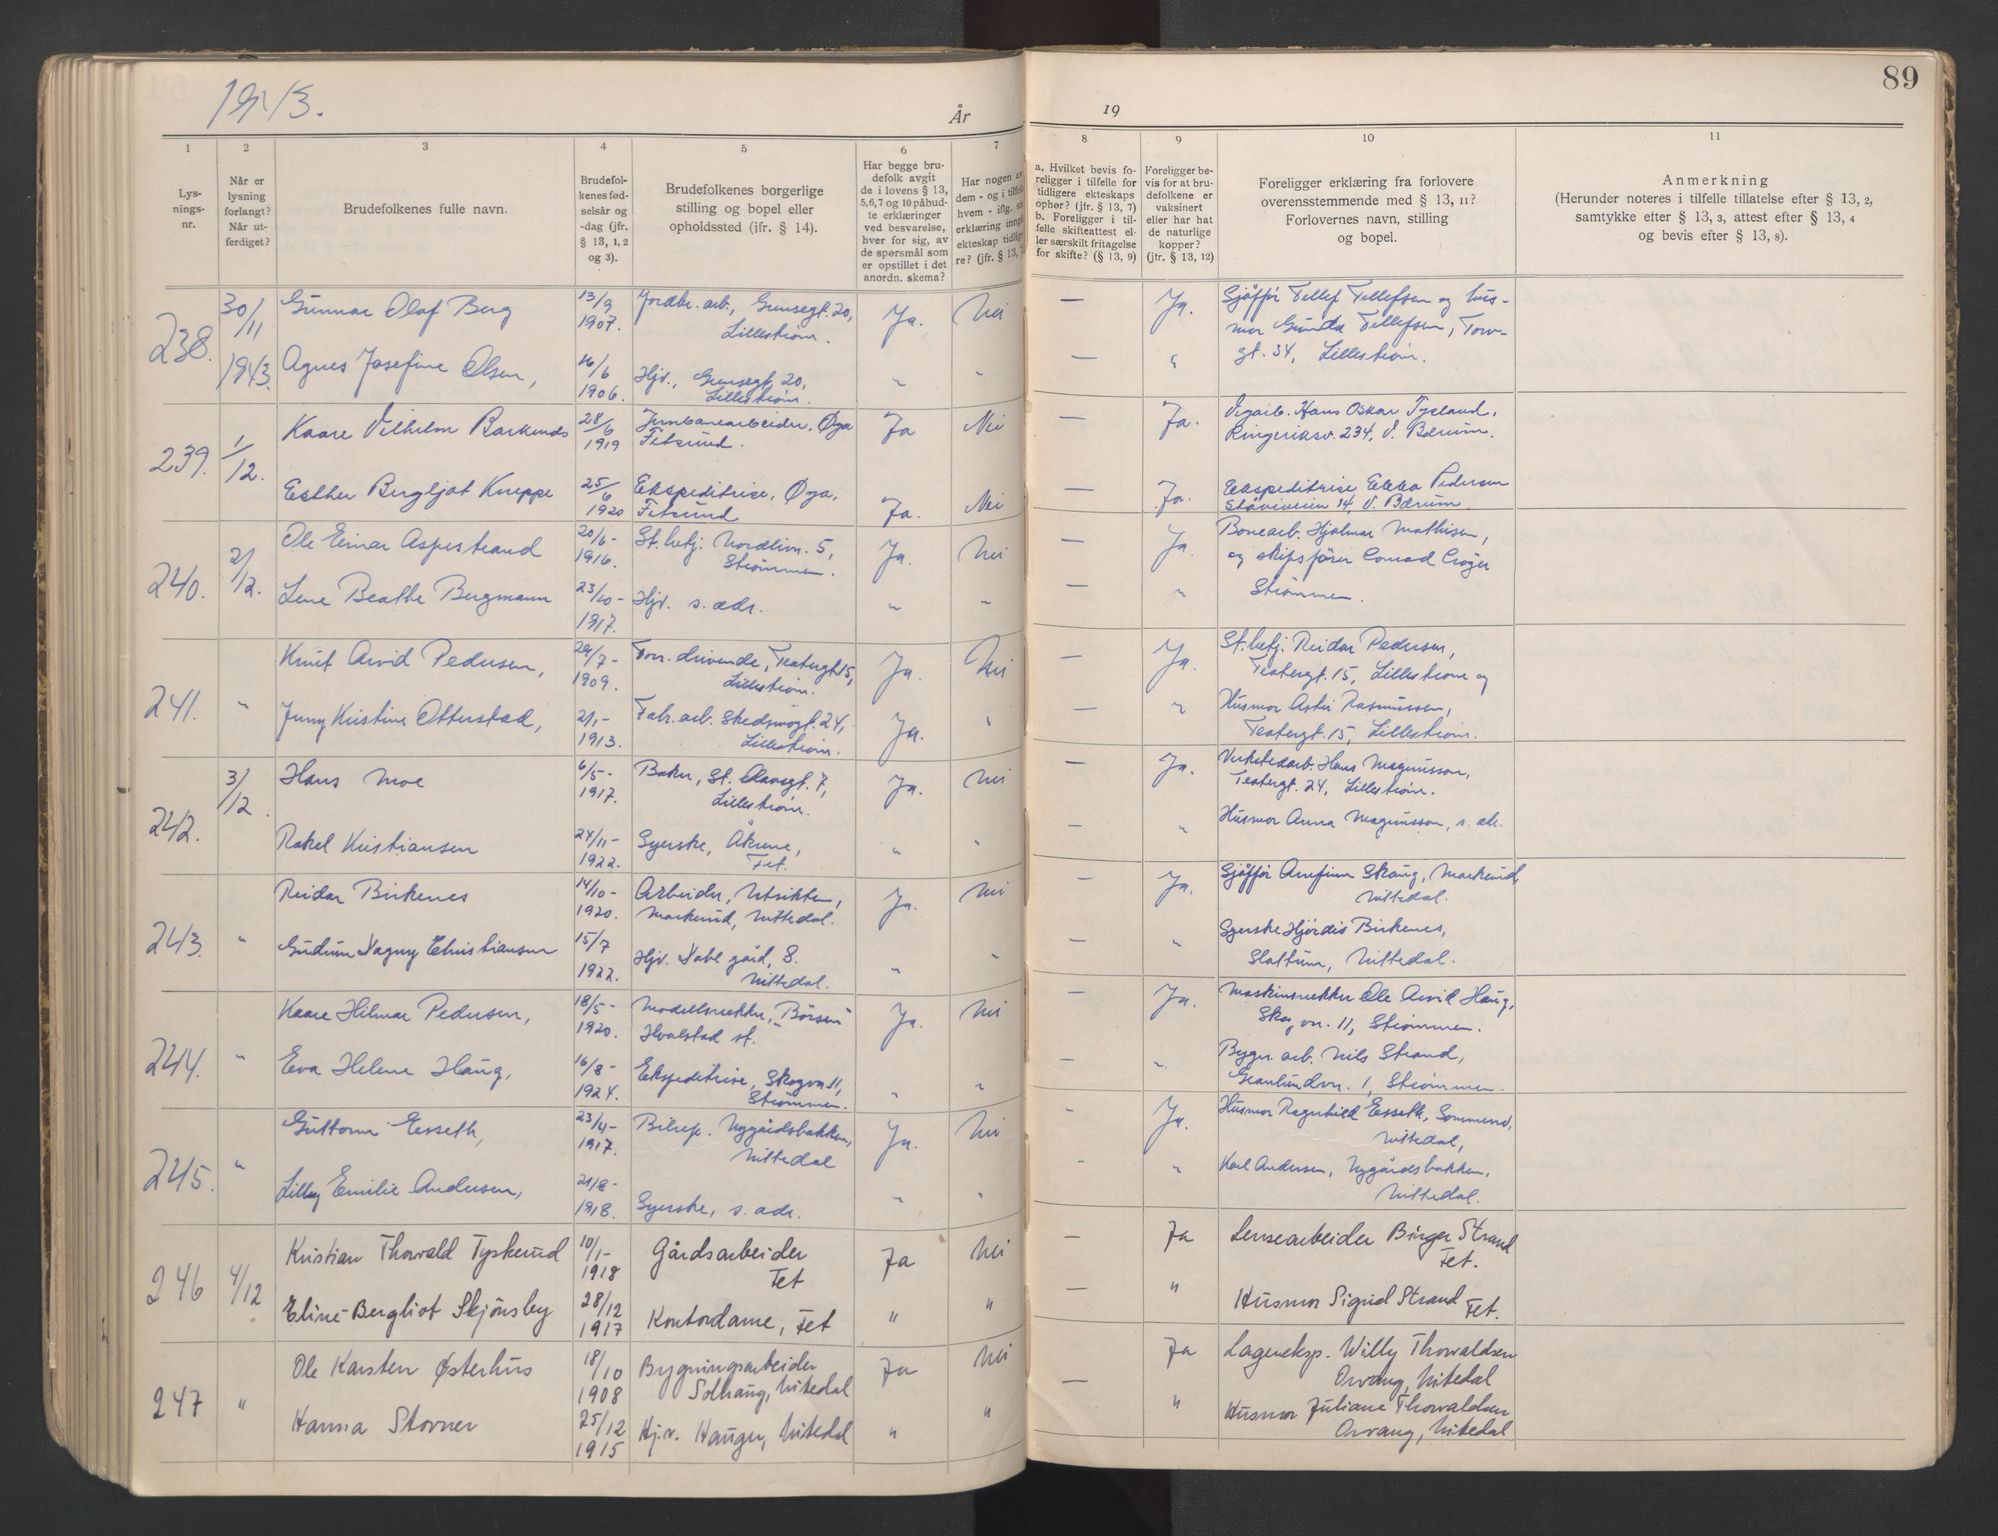 1943.
År
19
89
1
2
3
4
5
6
7
8
9
10
11
Lys-
nings-
nr.
Når er
lysning
forlangt?
Når ut-
ferdiget?
Brudefolkenes fulle navn.
Brudefol-
kenes fød-
selsår og
-dag (jfr.
§ 13, 1, 2
og 3).
Brudefolkenes borgerlige
stilling og bopel eller
opholdssted (jfr. § 14).
Har begge bru-
defolk avgit
de i lovens § 13,
5,6,7 og 10 påbud-
te erklæringer
ved besvarelse,
hver for sig, av
de spørsmål som
er opstillet i det
anordn. skema?
Har nogen av
dem - og i tilfelle
hvem - iflg. sin
erklæring inngått
ekteskap tidlige-
re? (jfr. § 13, 7
a. Hvilket bevis fo-
religger i tilfelle for
tidligere ekteskaps
ophør? (jfr. § 13, 7)
b. Foreligger i til-
felle skifteattest el-
ler særskilt fritagelse
for skifte? (§ 13, 9)
Foreligger be-
vis for at bru-
defolkene er
vaksinert
eller har hat
de naturlige
kopper?
(jfr. § 13, 12)
Foreligger erklæring fra forlovere
overensstemmende med § 13, 11?
Forlovernes navn, stilling
og bopel.
Anmerkning
(Herunder noteres i tilfelle tillatelse efter § 13, 2,
samtykke efter § 13, 3, attest efter § 13, 4
og bevis efter § 13, 8).
238. 30/11 1943. Gunnar Olaf Berg 13/9 1907. Jordbr. arb., Gunsegt. 20, Lillestrøm. Ja. Nei — Ja. Sjåffør Tellef Tellefsen og hus-
mor Gunda Tellefsen, Torv-
gt. 34, Lillestrøm.
Agnes Josefine Olsen, 16/6 1906. Hjv., Gunsegt. 20, Lillestrøm. " " — "
239. 1/12. Kaare Vilhelm 28/6 1919 Jernbanearbeider, Øya Fetsund. Ja Nei — Ja. Vegarb. Hans Oskar Tysland,
Ringeriksv. 234, V. Bærum.
Esther Bergljot Kneppe 25/6 1920 Ekspeditrise, Øya, Fetsund Ja. Nei — Ja. Ekspeditrise Ebba Pedersen
14 V. Bærum.
240. 2/12. Ole Einar Aspestrand 20/6- 1916. St. betj. Nordlivn. 5, Strømmen. Ja. Nei — Ja. Bonearb. Hjalmar Mathisen,
og skipsfører Conrad Crøger
Strømmen.
Lene Beathe Bergmann 23/10- 1917. Hjv. s. adr. " " — "
241. " Knut Arvid Pedersen, 29/7- 1909. Forr. drivende, Teatergt. 15, Lillestrøm. Ja. Nei — Ja. St. betj. Reidar Pedersen,
Teatergt. 15, Lillestrøm og
Jenny Kristine Otterstad, 2/1- 1913. Fabr. arb. Skedsmogt. 24, Lillestrøm. Ja. " — " Husmor Astri Rasmussen,
Teatergt. 15, Lillestrøm.
242. 3/12. Hans Moe 6/5- 1917. Baker, St. Olavsgt. 7, Lillestrøm. Ja. Nei — Ja. Verkstedarb. Hans Magnusson,
Teatergt. 24, Lillestrøm.
Rakel Kristiansen 24/11- 1922. Syerske, Åkrene, Fet. " " — " Husmor Anna Magnusson, s. adr.
243. " Reidar Birkenes 14/10- 1920. Arbeider, Utsikten, Markerud, Nittedal. Ja. Nei — Ja. Sjåffør Arnfinn Skaug, Markerud,
Nittedal.
Gudrun Dagny Christiansen 15/7 1922. Hjv. Dahl gård, S. Nittedal. " " — " Syerske Hjördis Birkenes,
Slattum, Nittedal.
244. " Kaare Hilmar Pedersen, 18/5- 1920. Modellsnekker, "Börsen" Hvalstad st. Ja. Nei — Ja. Maskinsnekker Ole Arvid Haug,
Skogvn. 11, Strømmen.
Eva Helene Haug, 16/8- 1924. Ekspeditrise, Skogvn 11, Strømmen. " " — " Bygn. arb. Nils Strand,
Granlundvn. 1, Strømmen.
245. " Guttorm Esseth, 23/4- 1917. Bilrep. Nygårdsbakken, Nittedal Ja. Nei - Ja. Husmor Ragnhild Esseth,
Nittedal,
Lilly Emilie Andersen, 21/8- 1918. Syerske, s. adr. " " — " Karl Andersen, Nygårdsbakken,
Nittedal.
246 4/12 Kristian Thorvald Tyskerud 10/1- 1918 Gårdsarbeider Fet Ja Nei — Ja Lensearbeider Birger Strand
Fet.
Eline Bergliot Skjønsby 28/12 1917 Kontordame, Fet " " — " Husmor Sigrid Strand
Fet.
247 " Ole Karsten Østerhus 18/10 1908 Bygningsarbeider Solhaug, Nitedal Ja Nei — Ja Lagereksp. Willy Thorvaldsen
Orvang, Nitedal
Hanna Stovner 25/12 1915 Hj.v. Hauger, Nitedal " " " Husmor Juliane Thorvaldsen
Orvang, Nitedal